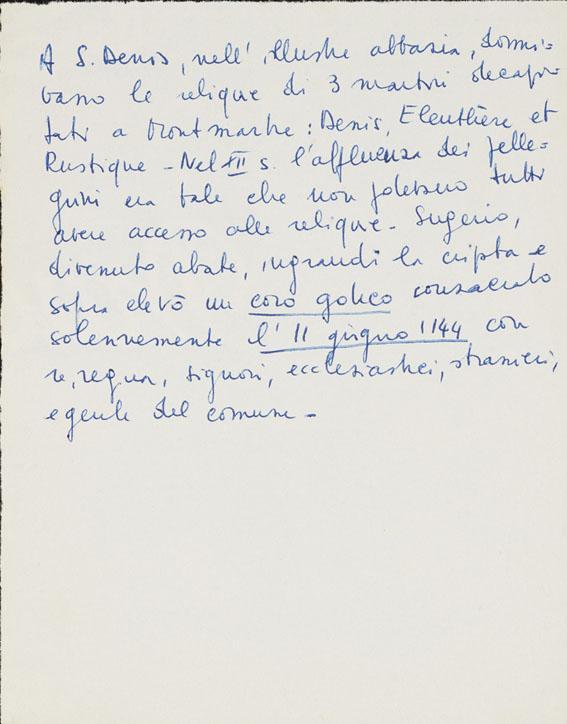 A S. Denis, nell' illustre abbazia, dormi=
vano le reliquie di 3 martiri decapi-
tati a Montmartre: Denis, Eleuthère et
Rustique - Nel XII s. l'affluenza dei pelle=
grini era tale che non potevano tutti
avere accesso alle reliquie - Sugerio,
divenuto abate, ingrandì la cripta e
sopra elevò un coro gotico consacrato
solennemente l'11 giugno 1144 con
re, regina, signori, ecclesiastici, stranieri,
e gente del comune -